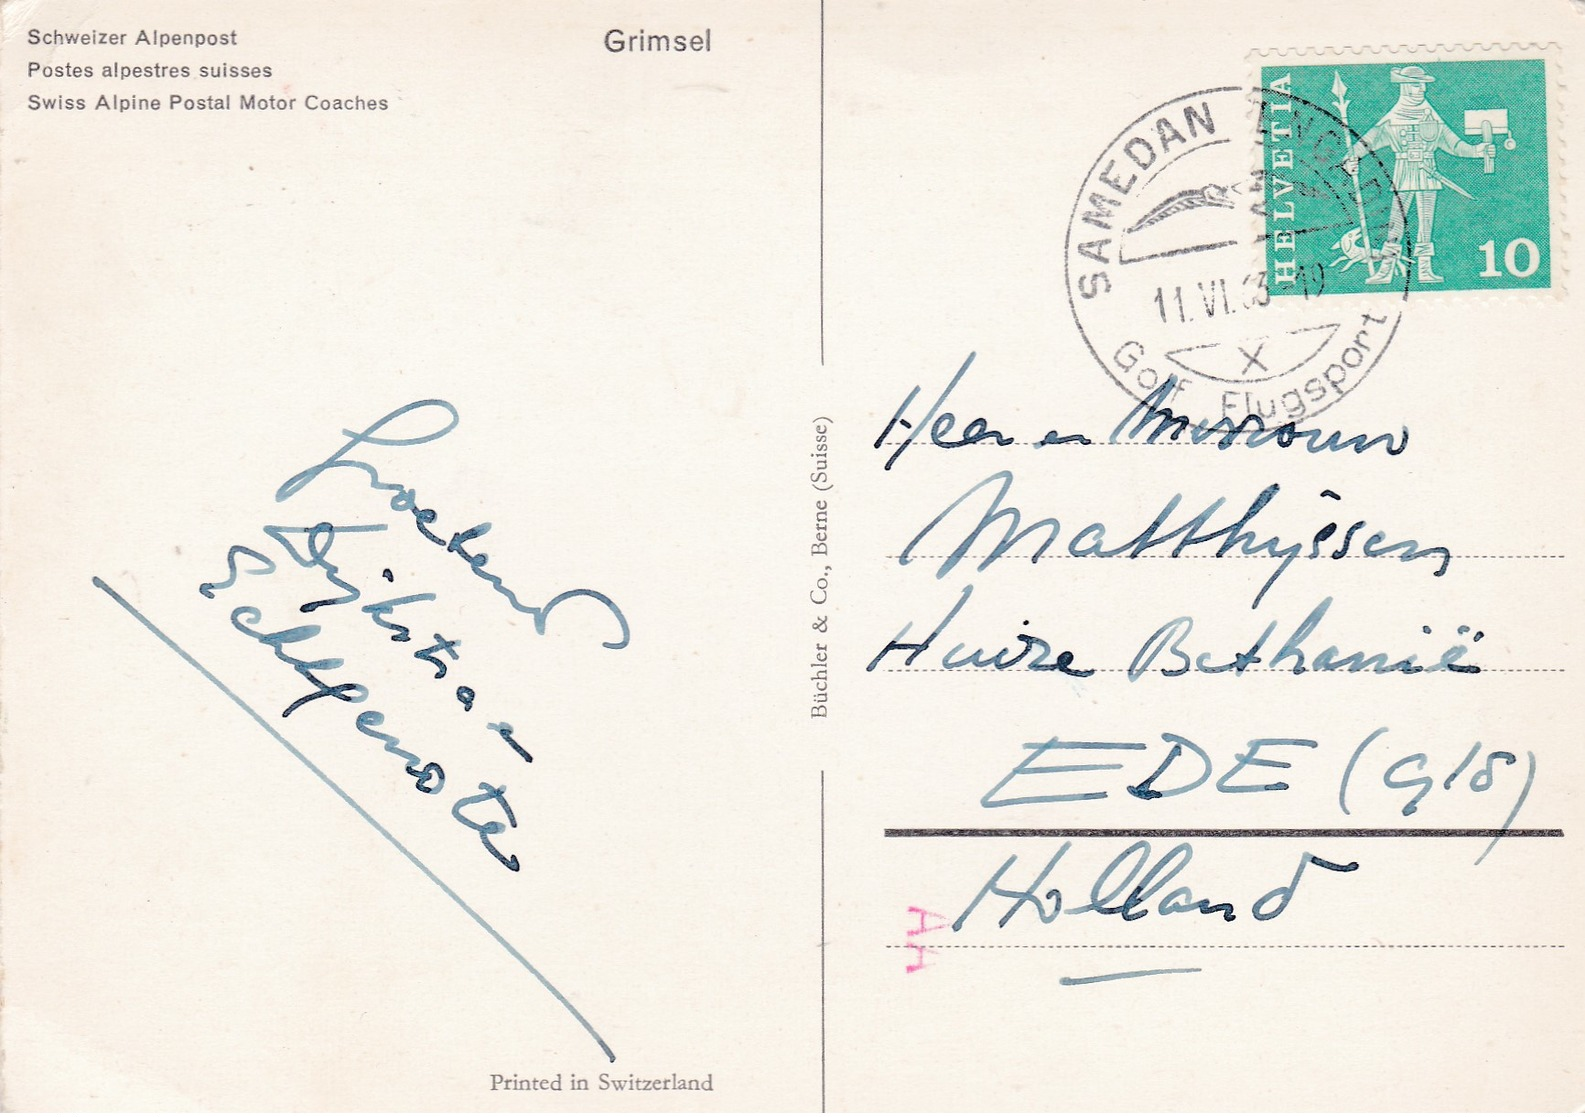 Schweizer Alpenpost
Postes alpestres suisses
Swiss Alpine Postal Motor Coaches
Grimsel
HELVETIA
10
SAMEDAN ENGADIN
11.VI.63-19
X
Golf Flugsport
Dijkstra en
Echtgenote
Büchler & Co., Berne (Suisse)
Heer en Mevrouw
Matthijssen
Huize Bethanië
EDE (Gld)
Holland
AA
Printed in Switzerland